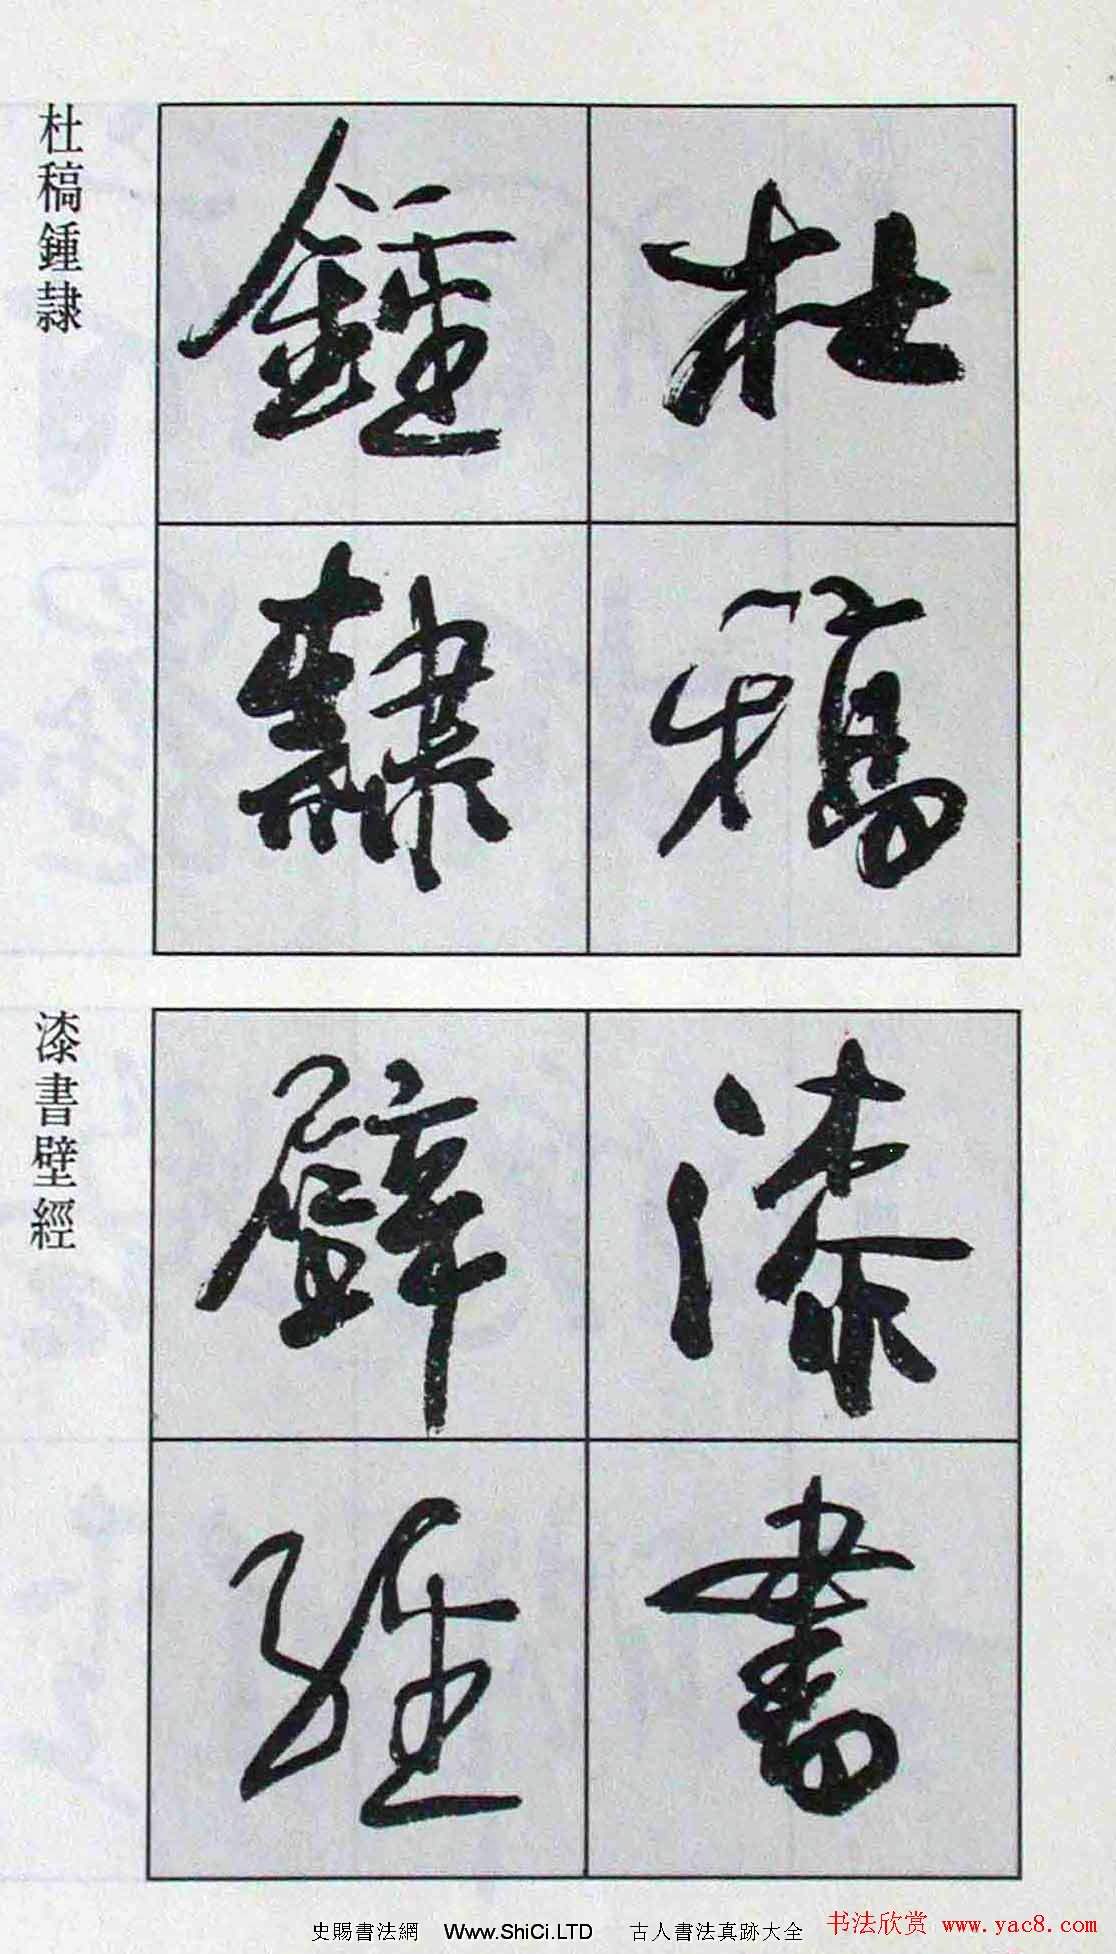 杜稿
鍾隸
杜稿鍾隸
漆書
壁經
漆書壁經
史賜書法網 Www.ShiCi.LTD 古人書法真跡大全
书法欣赏 www.yac8.com